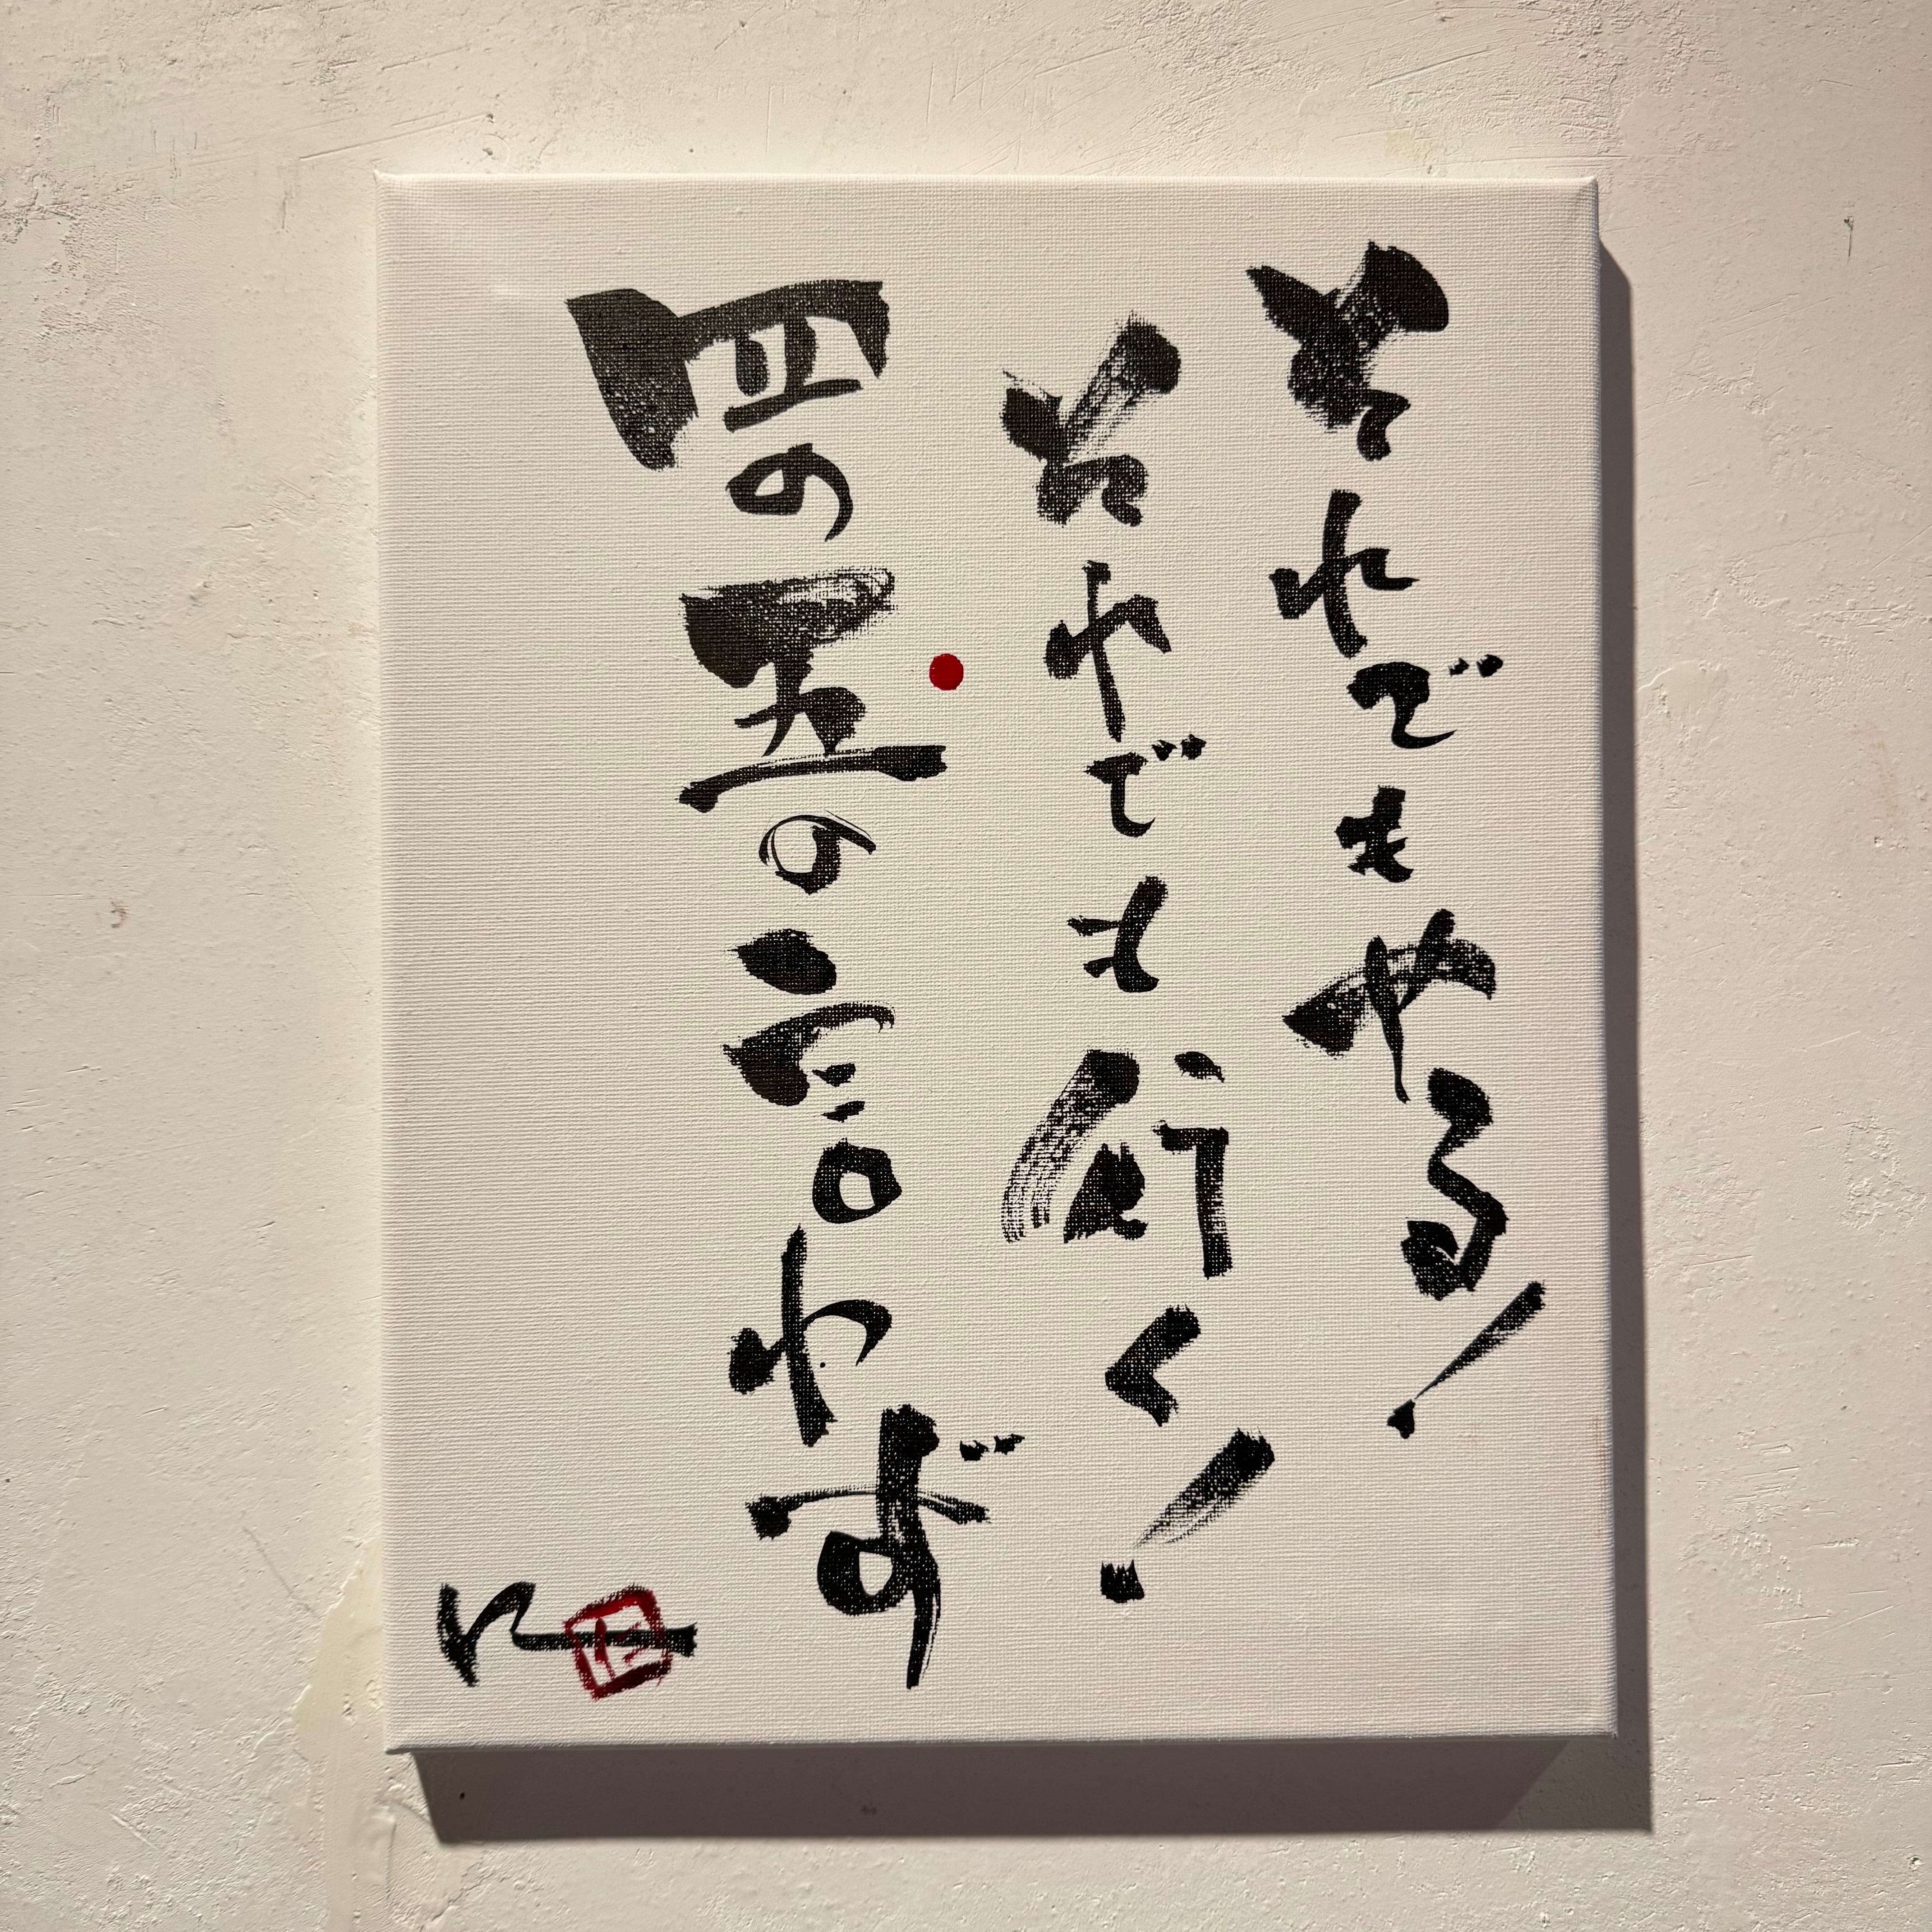 それでもやる!
それでも行く!
四の五の言わず